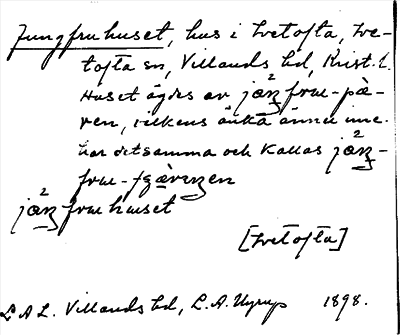 Jungfruhuset, hus i Ivetofta, Ive-
tofta sn, Villands hd, Krist. l.
Huset ägdes av jo²ŋfrue-pä-
ren, vilkens änka ännu inne-
har detsamma och kallas jo²ŋ-
frue-
jo²ŋfruehuset
[Ivetofta]
L A L. Villands hd, L. A. Nyrup 1898.